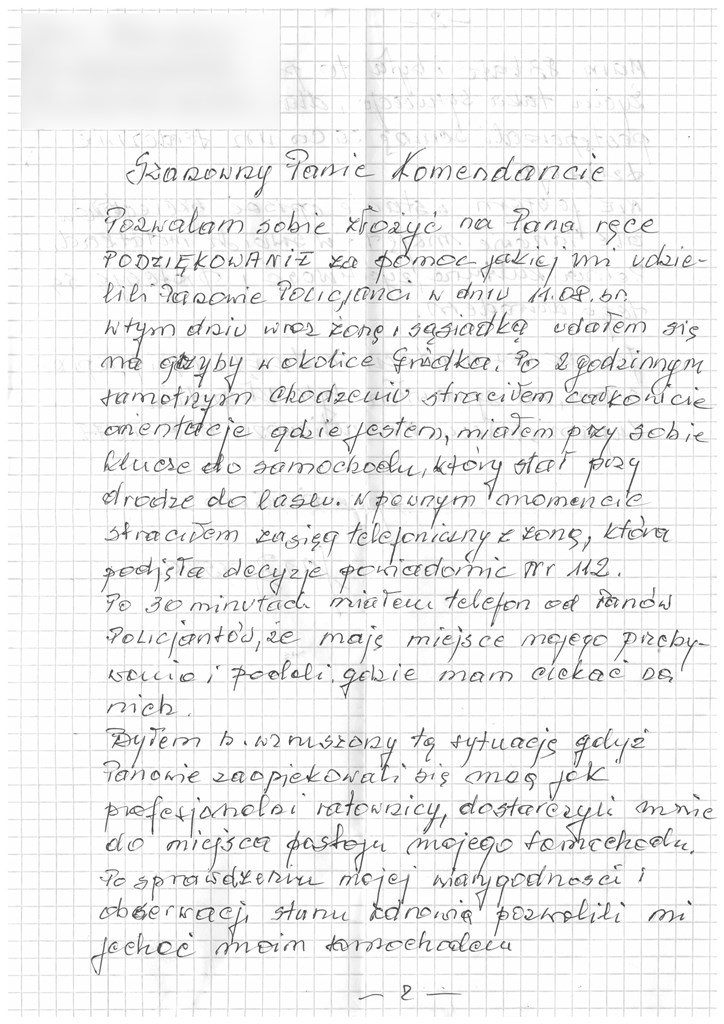 Szanowny Panie Komendancie
Pozwalam sobie złożyć na Pana ręce
PODZIĘKOWANIE za pomoc jakiej mi udzie-
lili Panowie Policjanci w dniu 11.08.br.
W tym dniu wraz żoną i sąsiadką udałem się
na grzyby w okolice Gródka. Po 2 godzinnym
samotnym chodzeniu straciłem całkowicie
orientację gdzie jestem, miałem przy sobie
klucze do samochodu, który stał przy
drodze do lasu. W pewnym momencie
straciłem zasięg telefoniczny z żoną, która
podjęła decyzję powiadomić Nr 112.
Po 30 minutach miałem telefon od Panów
Policjantów, że mają miejsce mojego przeby-
wania i podali gdzie mam czekać na
nich.
Byłem b. wzruszony tą sytuacją gdyż
Panowie zaopiekowali się mną jak
profesjonalni ratownicy, dostarczyli mnie
do miejsca postoju mojego samochodu.
Po sprawdzeniu mojej wiarygodności i
obserwacji stanu zdrowia pozwolili mi
jechać moim samochodem
— 2 —